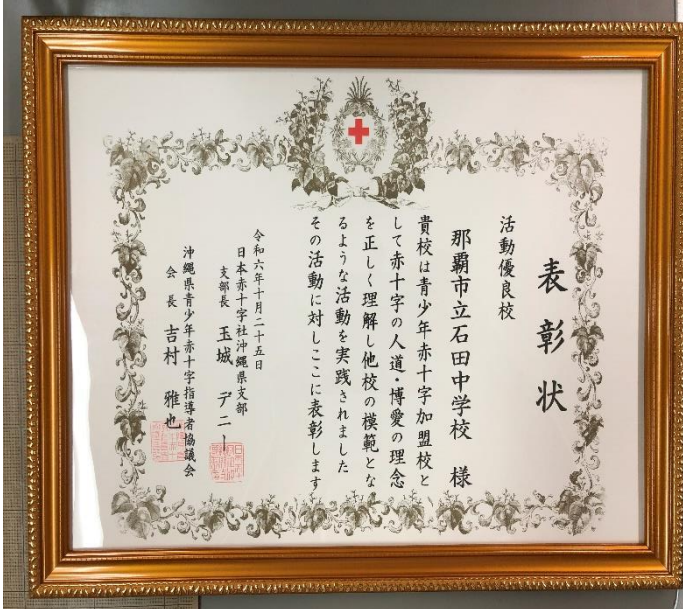 表彰状
活動優良校
那覇市立石田中学校 様
貴校は青少年赤十字加盟校と
して赤十字の人道・博愛の理念
を正しく理解し他校の模範とな
るような活動を実践されました
その活動に対しここに表彰します
令和六年十月二十五日
日本赤十字社沖縄県支部
支部長 玉城 デニー
沖縄県青少年赤十字指導者協議会
会長 吉村 雅也